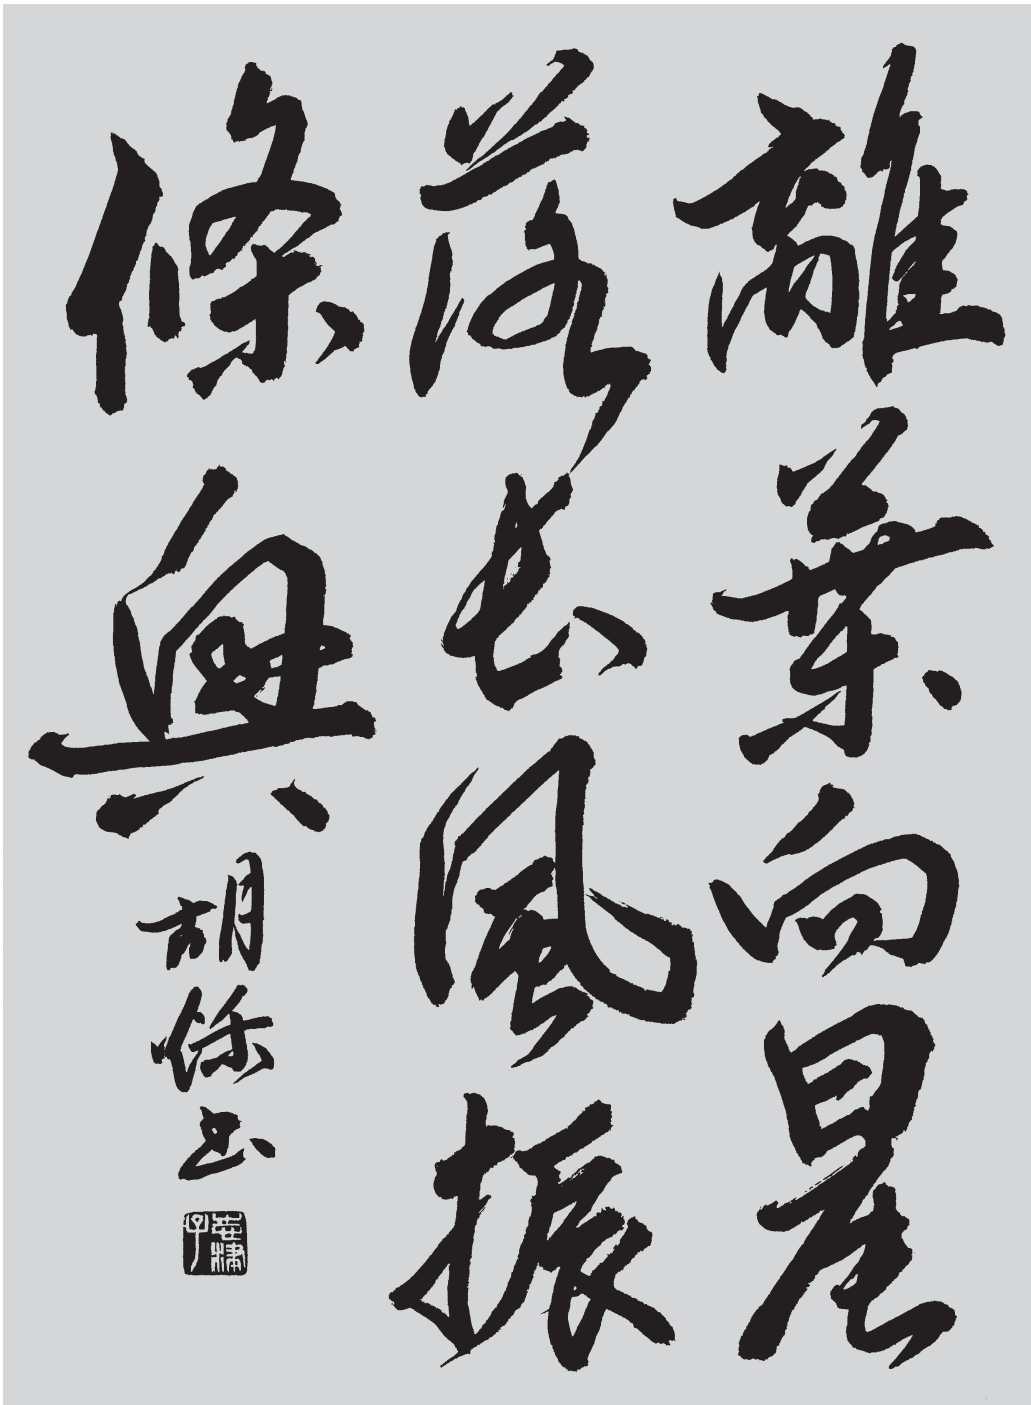 離葉向晨
落長風振
條興
胡
书